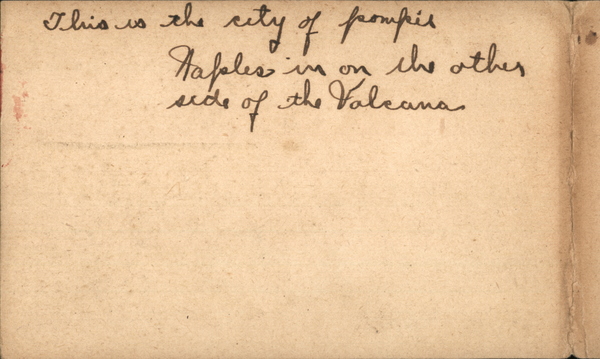 This is the city of pompii
Naples in on the other
side of the Valcana